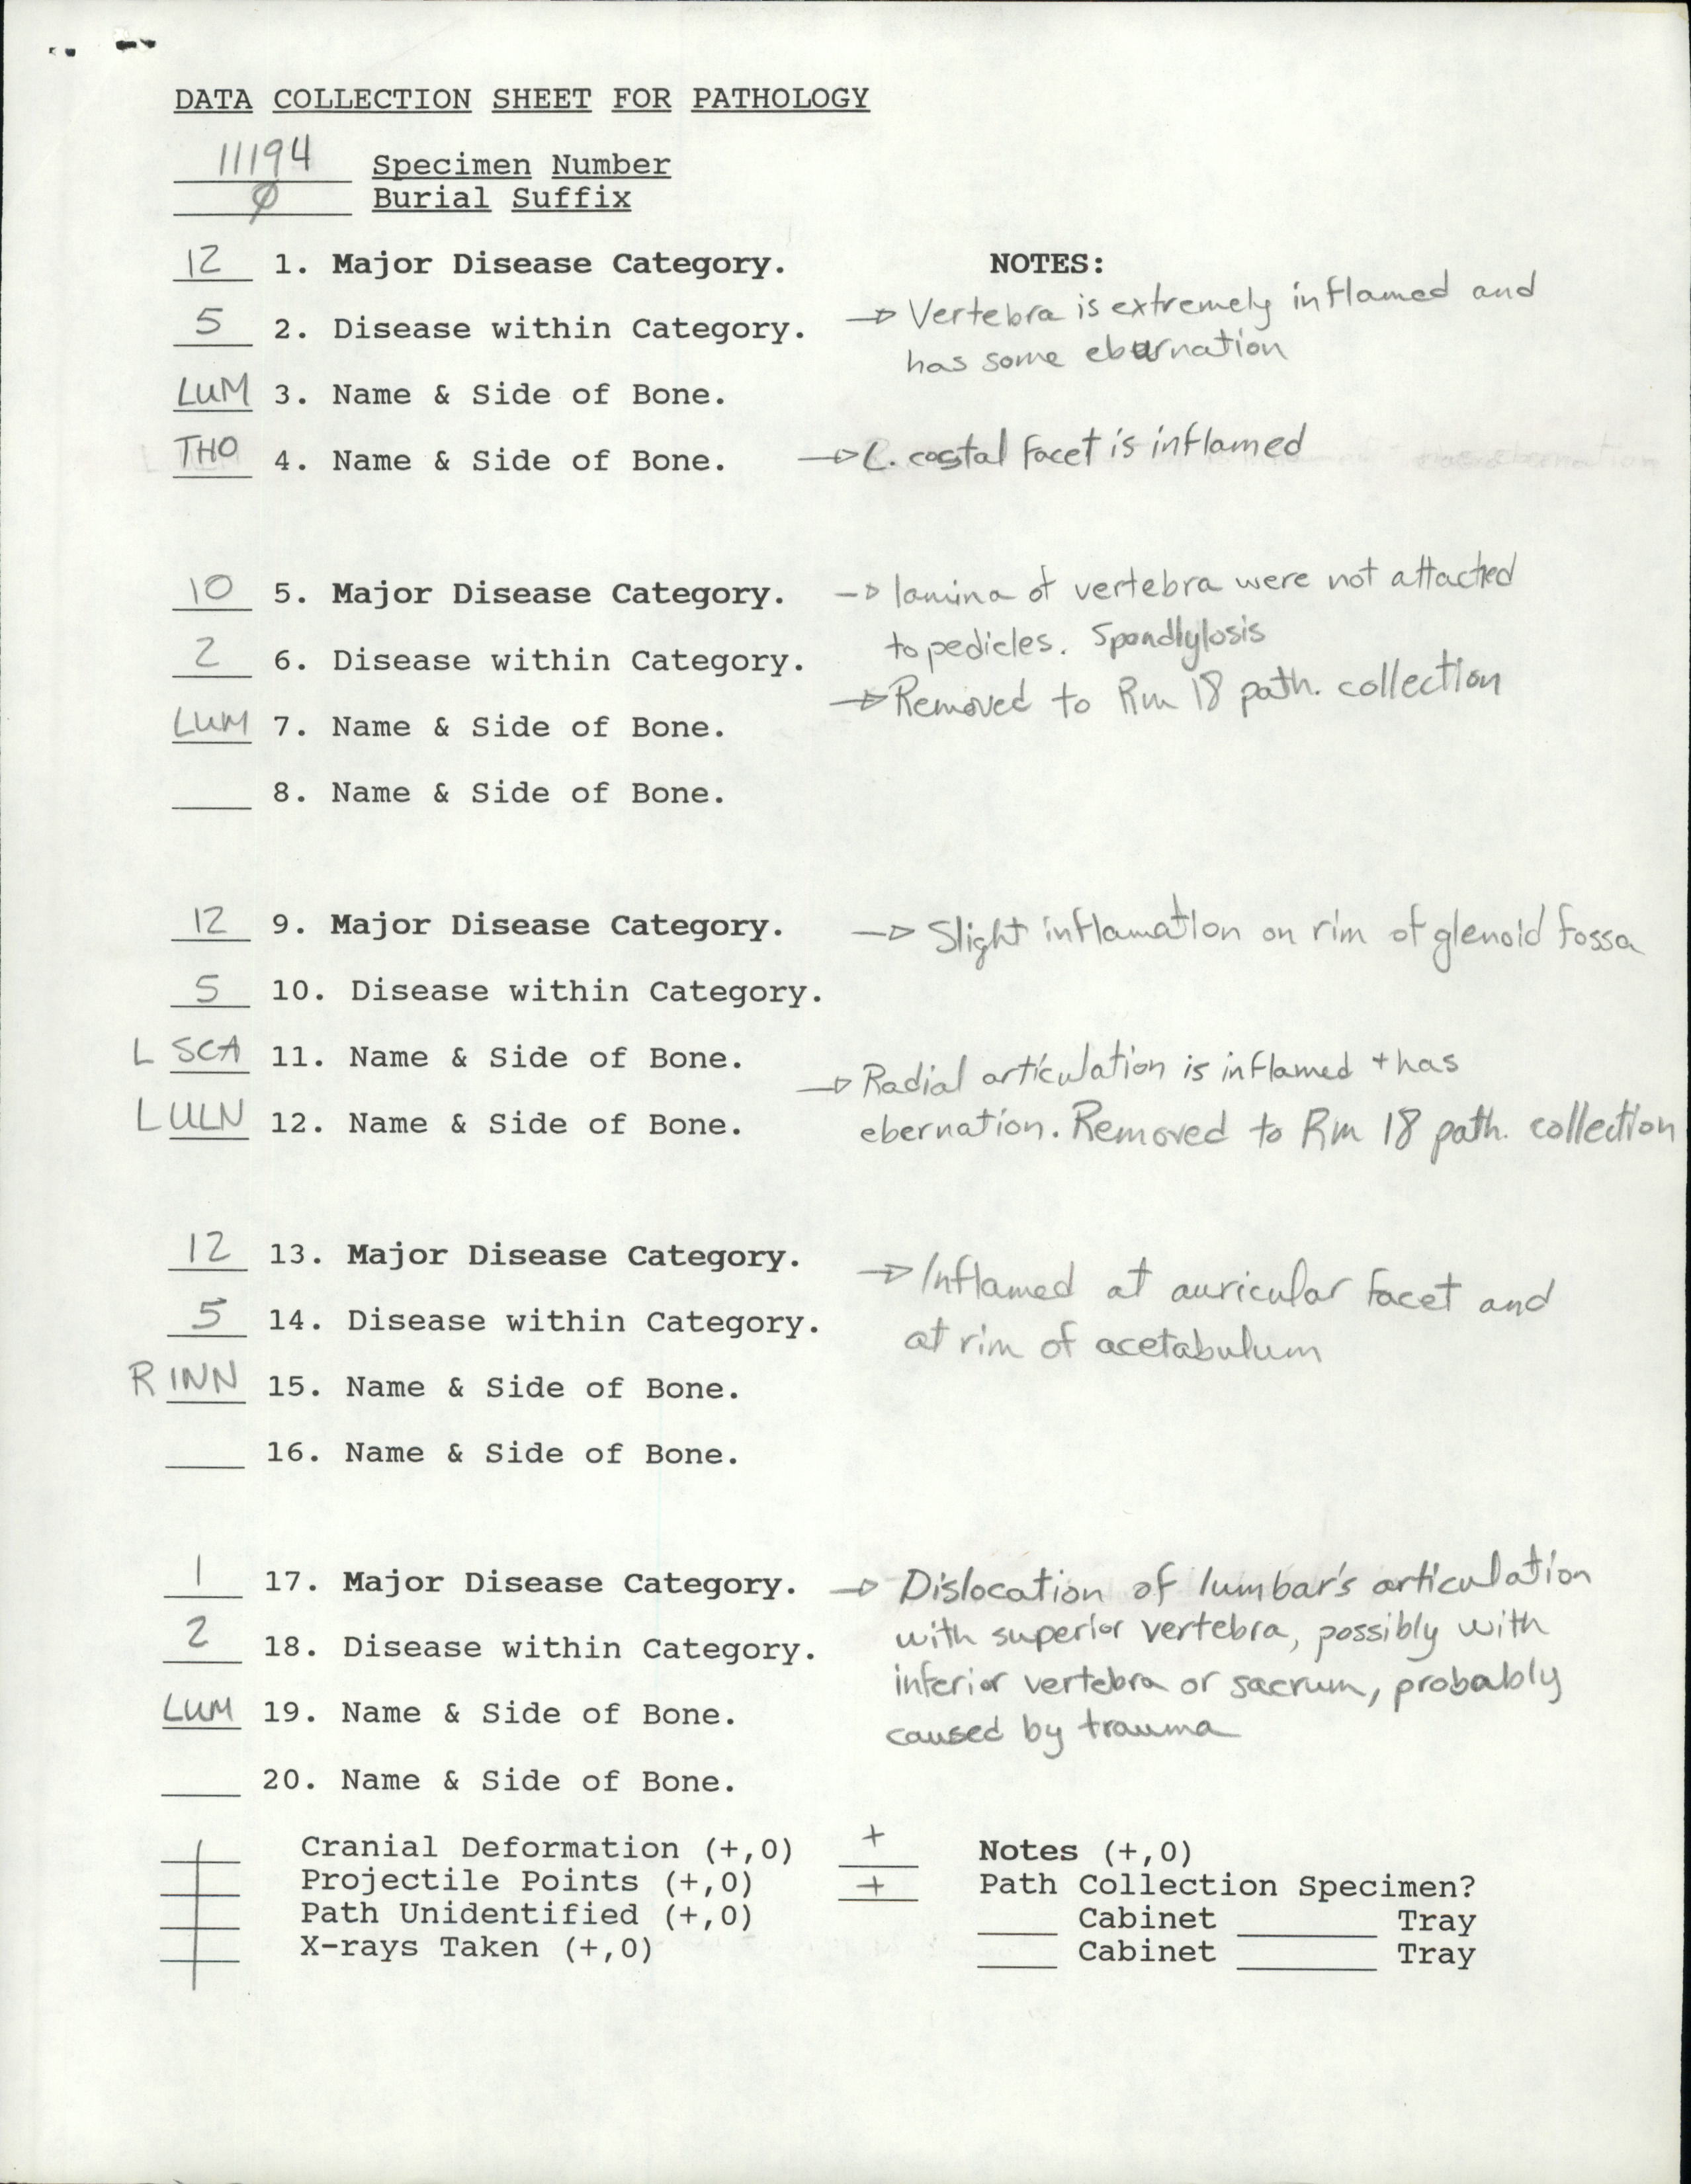 DATA COLLECTION SHEET FOR PATHOLOGY
11194 Specimen Number
Ø Burial Suffix
12 1. Major Disease Category. NOTES:
5 2. Disease within Category. → Vertebra is extremely inflamed and
has some eburnation
LUM 3. Name & Side of Bone.
THO 4. Name & Side of Bone. → L. costal facet is inflamed
10 5. Major Disease Category. → lamina of vertebra were not attached
to pedicles. Spondlylosis
2 6. Disease within Category.
→ Removed to Rm 18 path. collection
LUM 7. Name & Side of Bone.
8. Name & Side of Bone.
12 9. Major Disease Category. → Slight inflamation on rim of glenoid fossa
5 10. Disease within Category.
L SCA 11. Name & Side of Bone.
→ Radial articulation is inflamed + has
L ULN 12. Name & Side of Bone. ebernation. Removed to Rm 18 path. collection
12 13. Major Disease Category. → Inflamed at auricular facet and
5 14. Disease within Category. at rim of acetabulum
R INN 15. Name & Side of Bone.
16. Name & Side of Bone.
1 17. Major Disease Category. → Dislocation of lumbar's articulation
with superior vertebra, possibly with
2 18. Disease within Category.
inferior vertebra or sacrum, probably
LUM 19. Name & Side of Bone. caused by trauma
20. Name & Side of Bone.
Cranial Deformation (+,0) + Notes (+,0)
Projectile Points (+,0) + Path Collection Specimen?
Path Unidentified (+,0) Cabinet Tray
X-rays Taken (+,0) Cabinet Tray